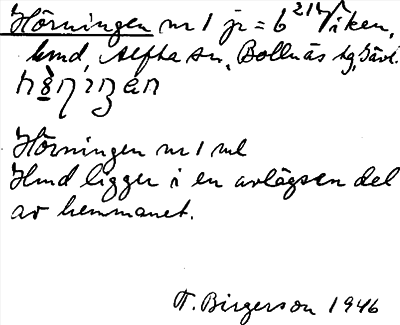 Hörningen nr 1 jr = b 21 Viken,
hmd, Alfta sn, Bollnäs tg, Gävl.
Hörningen nr 1 ml
Hmd ligger i en avlägsen del
av hemmanet.
T. Birgerson 1946